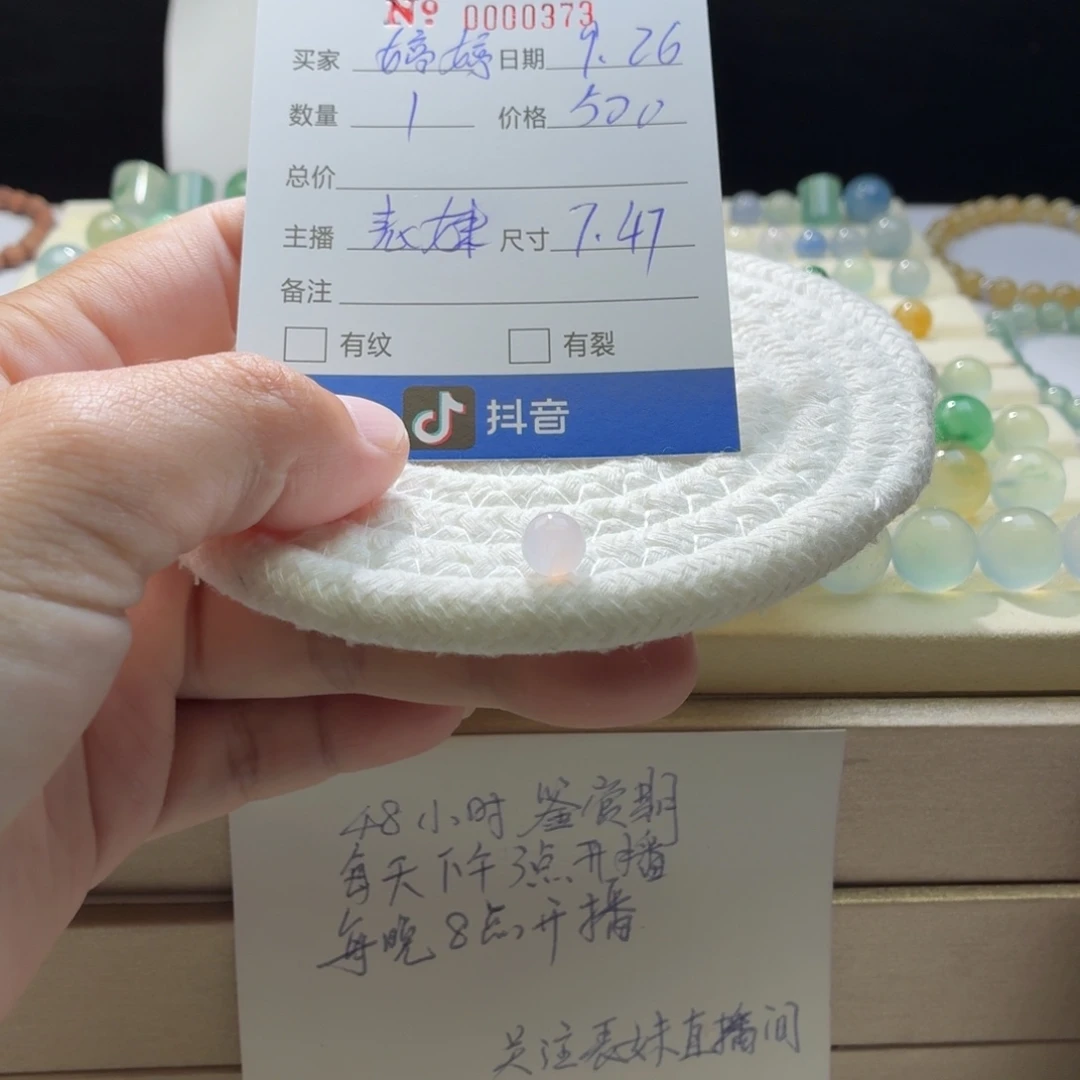 Nº 0000373
买家 婷婷 日期 9.26
数量 1 价格 500
总价
主播 表妹 尺寸 7.47
备注
有纹 有裂
抖音
48小时鉴赏期
每天下午3点开播
每晚8点开播
关注表妹直播间